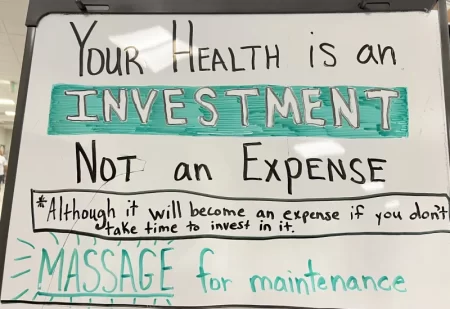 YOUR HEALTH is an
INVESTMENT
NOT an EXPENSE
*Although it will become an expense if you don't
take time to invest in it.
MASSAGE for maintenance